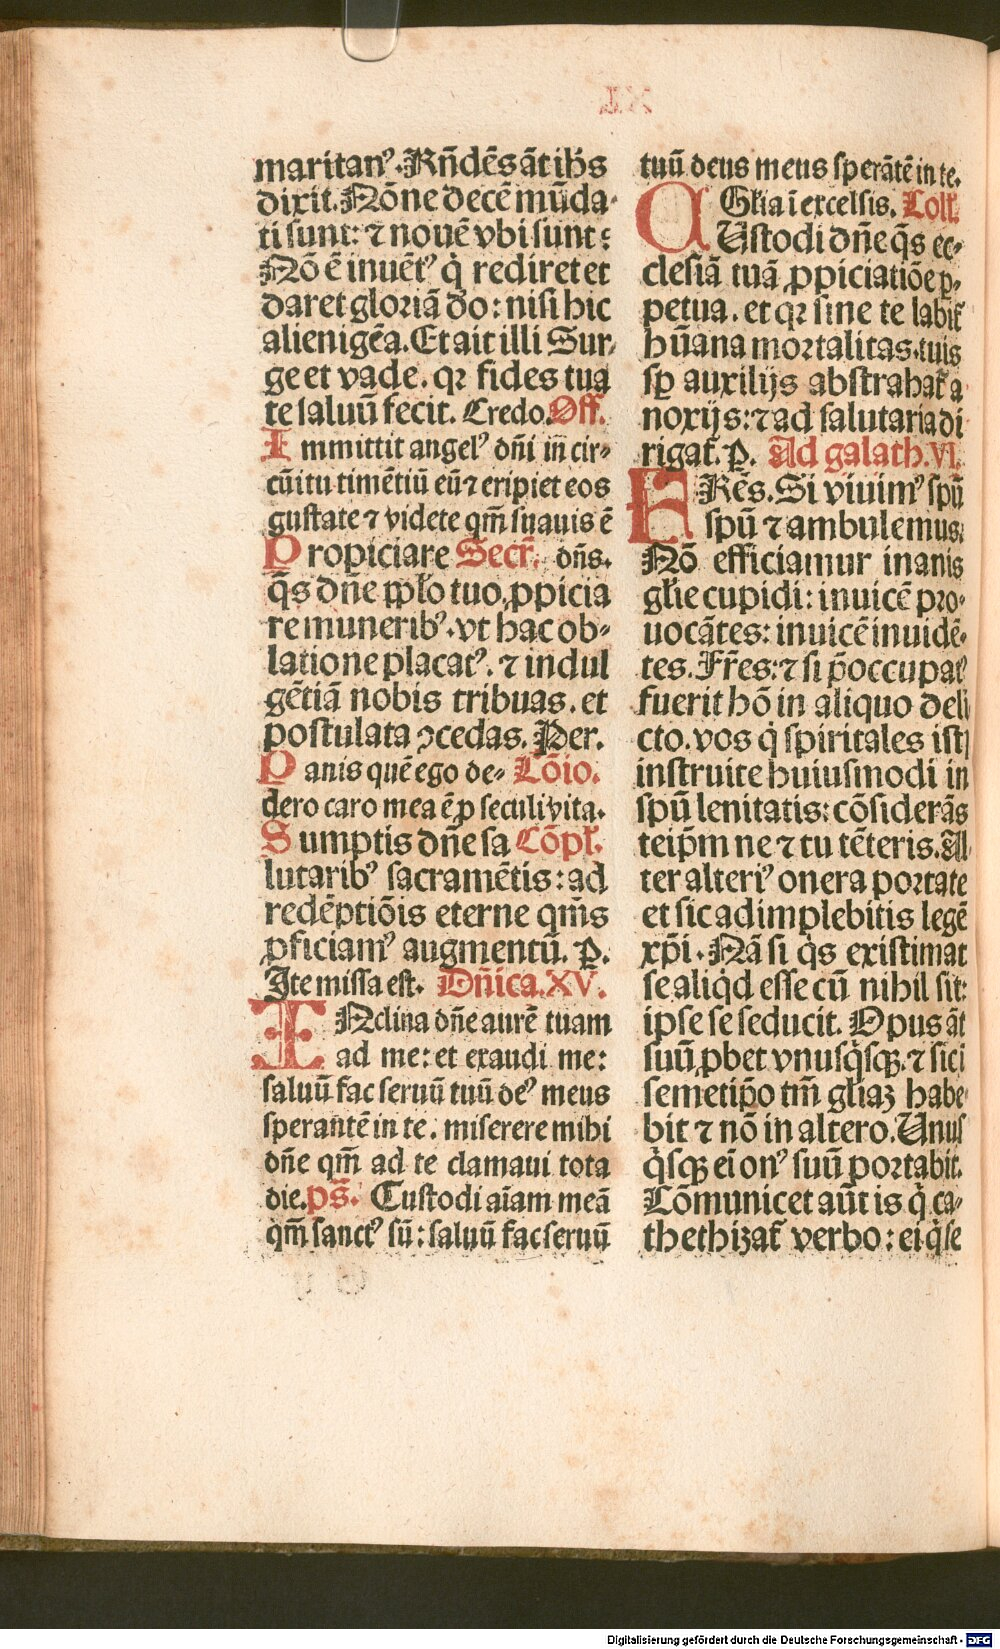 maritanꝰ. Rn̄dēs āt ih̄s
dixit. Nōne decē mūda-
ti sunt: ⁊ nouē vbi sunt:
Nō ē inuētꝰ q̇ rediret et
daret gloriā do: nisi hic
alienigēa. Et ait illi Sur-
ge et vade. qꝛ fides tua
te saluū fecit. Credo. Off.
Immittit angelꝰ dn̄i in cir-
cūitu timētiū eū ⁊ eripiet eos
gustate ⁊ videte qm̄ suauis ē
Propiciare Secr̄. dn̄s.
q̄s dn̄e pplo tuo, ꝓpicia
re muneribꝰ. vt hac ob-
latione placatꝰ. ⁊ indul
gētiā nobis tribuas. et
postulata ꝯcedas. Per.
Panis quē ego de- Cōio.
dero caro mea ē ꝓ seculi vita.
Sumptis dn̄e sa Cōpl.
lutaribꝰ sacramētis: ad
redēptiōis eterne qm̄s
ꝓficiamꝰ augmentū. P.
Ite missa est. Dn̄ica. XV.
INclina dn̄e aurē tuam
ad me: et exaudi me:
saluū fac seruū tuū deꝰ meus
sperantē in te. miserere mihi
dn̄e qm̄ ad te clamaui tota
die. ps̄. Custodi aīam meā
qm̄ sanctꝰ sū: saluū fac seruū
tuū deus meus sperātē in te.
Gl̄ia ī excelsis. Coll.
CUstodi dn̄e q̄s ec-
clesiā tuā ꝓpiciatiōe ꝑ-
petua. et qꝛ sine te labit̄
hūana mortalitas. tuis
sꝑ auxilijs abstrahat̄ a
noxijs: ⁊ ad salutaria di
rigat̄. P. Ad galath. VI.
FRēs. Si viuimꝰ spū
spū ⁊ ambulemus.
Nō efficiamur inanis
gl̄ie cupidi: inuicē pro-
uocātes: inuicē inuidē-
tes. Fr̄es: ⁊ si p̄occupatꝰ
fuerit hō in aliquo deli
cto. vos q̇ spiritales istꝭ
instruite huiusmodi in
spū lenitatis: cōsiderās
teip̄m ne ⁊ tu tēteris. Al-
ter alteriꝰ onera portate
et sic adimplebitis legē
xp̄i. Nā si q̇s existimat
se aliq̇d esse cū nihil sit:
ipse se seducit. Opus āt
suū ꝓbet vnusq̇sqꝫ. ⁊ sic ī
semetip̄o tm̄ gl̄iaꝫ habe-
bit ⁊ nō in altero. Unus
q̇sqꝫ eī onꝰ suū portabit.
Cōmunicet aūt is q̇ ca-
thethizat̄ verbo: ei q̇ se